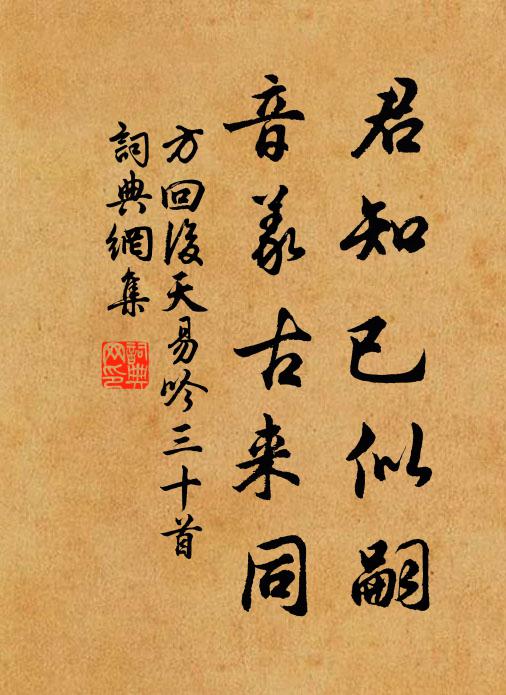 君知已似嗣
音義古来同
方回後天易吟三十首
詞典網集
詞典網印